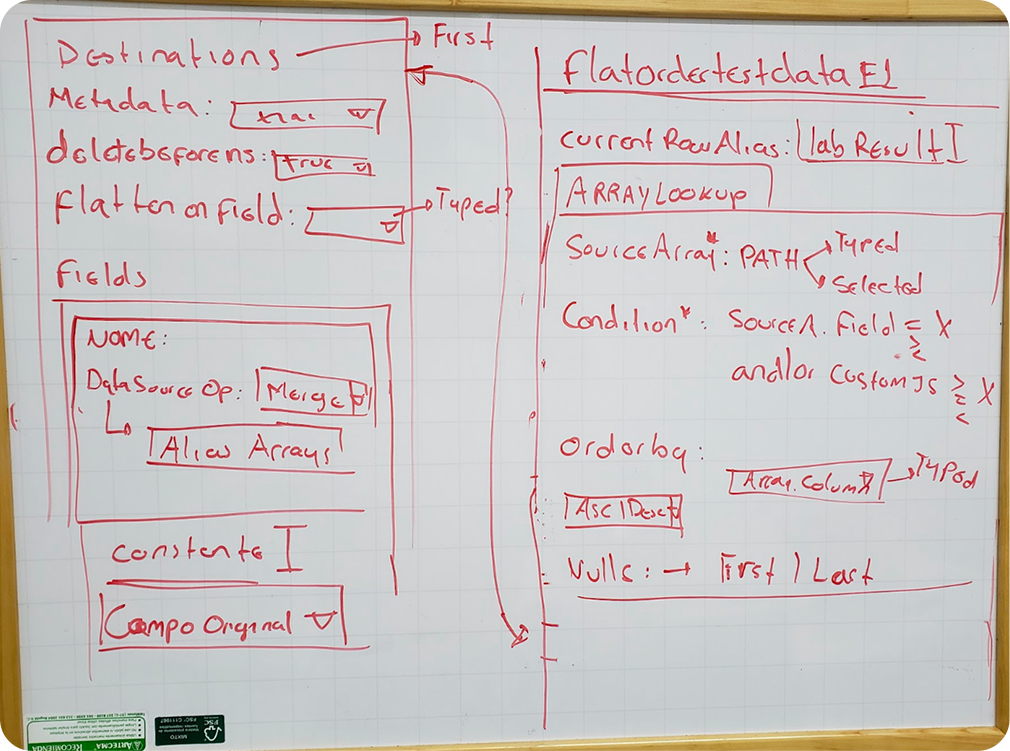 Destinations → First
Metadata: true
deletebeforens: true
flatten on field: → Typed?
Fields
NOME:
Data Source Op: Merge
Alias Arrays
constante
Campo Original
flatordertestdata E1
current Row Alias: lab Result
ARRAY LOOKUP
Source Array*: PATH
Typed
Selected
Condition*: SourceA. Field = X
>
<
and/or custom JS > X
=
<
Orderby:
Array.Column → Typed
Asc | Desc
Nulls: → First / Last
FSC
MIXTO
FSC® C111967
ARTECMA® RECOMIENDA